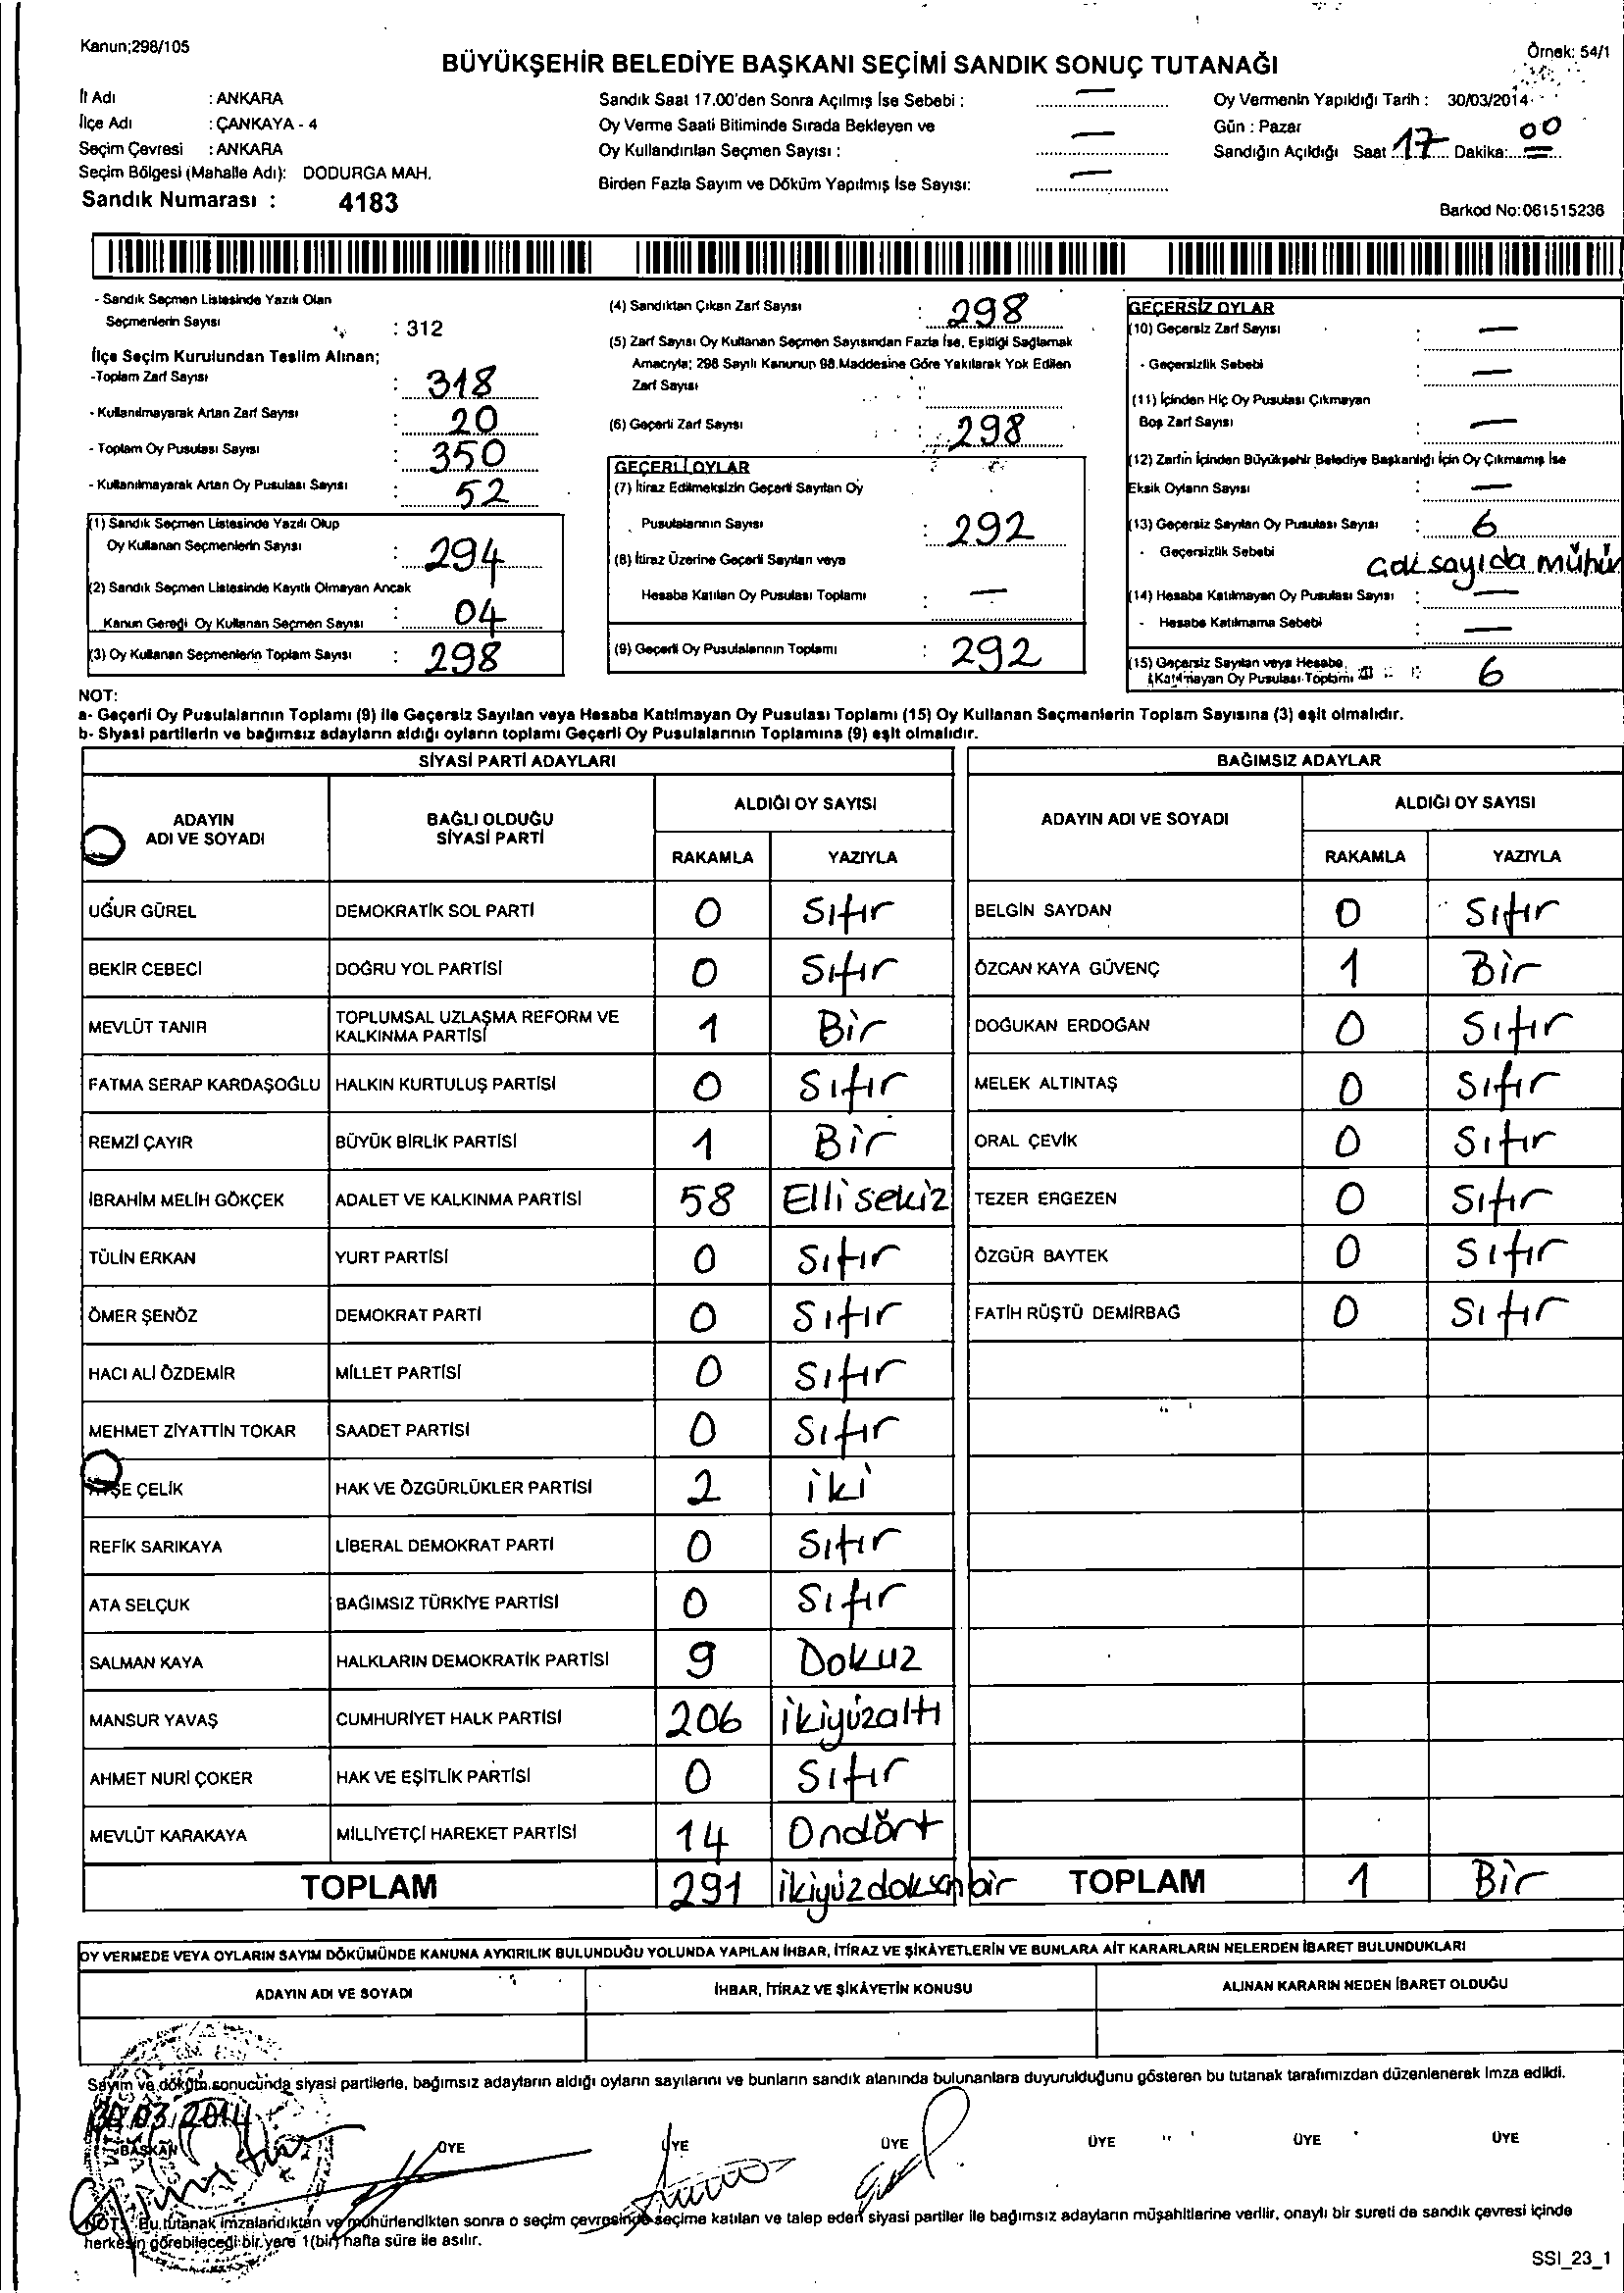 Kanun;298/105
Örnek: 54/1
BÜYÜKŞEHİR BELEDİYE BAŞKANI SEÇİMİ SANDIK SONUÇ TUTANAĞI
İl Adı : ANKARA
İlçe Adı : ÇANKAYA - 4
Seçim Çevresi : ANKARA
Seçim Bölgesi (Mahalle Adı): DODURGA MAH.
Sandık Numarası : 4183
Sandık Saat 17.00'den Sonra Açılmış İse Sebebi : —
Oy Verme Saati Bitiminde Sırada Bekleyen ve
Oy Kullandırılan Seçmen Sayısı : —
Birden Fazla Sayım ve Döküm Yapılmış İse Sayısı: —
Oy Vermenin Yapıldığı Tarih : 30/03/2014
Gün : Pazar
Sandığın Açıldığı Saat 17 Dakika: 00
Barkod No:061515236
- Sandık Seçmen Listesinde Yazılı Olan
Seçmenlerin Sayısı : 312
İlçe Seçim Kurulundan Teslim Alınan;
-Toplam Zarf Sayısı : 318
- Kullanılmayarak Artan Zarf Sayısı : 20
- Toplam Oy Pusulası Sayısı : 350
- Kullanılmayarak Artan Oy Pusulası Sayısı : 52
(1) Sandık Seçmen Listesinde Yazılı Olup
Oy Kullanan Seçmenlerin Sayısı : 294
(2) Sandık Seçmen Listesinde Kayıtlı Olmayan Ancak
Kanun Gereği Oy Kullanan Seçmen Sayısı : 04
(3) Oy Kullanan Seçmenlerin Toplam Sayısı : 298
(4) Sandıktan Çıkan Zarf Sayısı : 298
(5) Zarf Sayısı Oy Kullanan Seçmen Sayısından Fazla İse, Eşitliği Sağlamak
Amacıyla; 298 Sayılı Kanunun 98.Maddesine Göre Yakılarak Yok Edilen
Zarf Sayısı :
(6) Geçerli Zarf Sayısı : 298
GEÇERLİ OYLAR
(7) İtiraz Edilmeksizin Geçerli Sayılan Oy
Pusulalarının Sayısı : 292
(8) İtiraz Üzerine Geçerli Sayılan veya
Hesaba Katılan Oy Pusulası Toplamı : —
(9) Geçerli Oy Pusulalarının Toplamı : 292
GEÇERSİZ OYLAR
(10) Geçersiz Zarf Sayısı : —
- Geçersizlik Sebebi : —
(11) İçinden Hiç Oy Pusulası Çıkmayan
Boş Zarf Sayısı : —
(12) Zarfın İçinden Büyükşehir Belediye Başkanlığı İçin Oy Çıkmamış İse
Eksik Oyların Sayısı : —
(13) Geçersiz Sayılan Oy Pusulası Sayısı : 6
- Geçersizlik Sebebi Çok sayıda mühür
(14) Hesaba Katılmayan Oy Pusulası Sayısı : —
- Hesaba Katılmama Sebebi : —
(15) Geçersiz Sayılan veya Hesaba
Katılmayan Oy Pusulası Toplamı : 6
NOT:
a- Geçerli Oy Pusulalarının Toplamı (9) ile Geçersiz Sayılan veya Hesaba Katılmayan Oy Pusulası Toplamı (15) Oy Kullanan Seçmenlerin Toplam Sayısına (3) eşit olmalıdır.
b- Siyasi partilerin ve bağımsız adayların aldığı oyların toplamı Geçerli Oy Pusulalarının Toplamına (9) eşit olmalıdır.
SİYASİ PARTİ ADAYLARI
ADAYIN ADI VE SOYADI BAĞLI OLDUĞU SİYASİ PARTİ ALDIĞI OY SAYISI
RAKAMLA YAZIYLA
UĞUR GÜREL DEMOKRATİK SOL PARTİ 0 Sıfır
BEKİR CEBECİ DOĞRU YOL PARTİSİ 0 Sıfır
MEVLÜT TANIR TOPLUMSAL UZLAŞMA REFORM VE KALKINMA PARTİSİ 1 Bir
FATMA SERAP KARDAŞOĞLU HALKIN KURTULUŞ PARTİSİ 0 Sıfır
REMZİ ÇAYIR BÜYÜK BİRLİK PARTİSİ 1 Bir
İBRAHİM MELİH GÖKÇEK ADALET VE KALKINMA PARTİSİ 58 Elli sekiz
TÜLİN ERKAN YURT PARTİSİ 0 Sıfır
ÖMER ŞENÖZ DEMOKRAT PARTİ 0 Sıfır
HACI ALİ ÖZDEMİR MİLLET PARTİSİ 0 Sıfır
MEHMET ZİYATTİN TOKAR SAADET PARTİSİ 0 Sıfır
ÇELİK HAK VE ÖZGÜRLÜKLER PARTİSİ 2 iki
REFİK SARIKAYA LİBERAL DEMOKRAT PARTİ 0 Sıfır
ATA SELÇUK BAĞIMSIZ TÜRKİYE PARTİSİ 0 Sıfır
SALMAN KAYA HALKLARIN DEMOKRATİK PARTİSİ 9 Dokuz
MANSUR YAVAŞ CUMHURİYET HALK PARTİSİ 206 ikiyüzaltı
AHMET NURİ ÇOKER HAK VE EŞİTLİK PARTİSİ 0 Sıfır
MEVLÜT KARAKAYA MİLLİYETÇİ HAREKET PARTİSİ 14 Ondört
TOPLAM 291 ikiyüzdoksanbir
BAĞIMSIZ ADAYLAR
ADAYIN ADI VE SOYADI ALDIĞI OY SAYISI
RAKAMLA YAZIYLA
BELGİN SAYDAN 0 Sıfır
ÖZCAN KAYA GÜVENÇ 1 Bir
DOĞUKAN ERDOĞAN 0 Sıfır
MELEK ALTINTAŞ 0 Sıfır
ORAL ÇEVİK 0 Sıfır
TEZER ERGEZEN 0 Sıfır
ÖZGÜR BAYTEK 0 Sıfır
FATİH RÜŞTÜ DEMİRBAĞ 0 Sıfır
TOPLAM 1 Bir
OY VERMEDE VEYA OYLARIN SAYIM DÖKÜMÜNDE KANUNA AYKIRILIK BULUNDUĞU YOLUNDA YAPILAN İHBAR, İTİRAZ VE ŞİKÂYETLERİN VE BUNLARA AİT KARARLARIN NELERDEN İBARET BULUNDUKLARI
ADAYIN ADI VE SOYADI İHBAR, İTİRAZ VE ŞİKÂYETİN KONUSU ALINAN KARARIN NEDEN İBARET OLDUĞU
Sayım ve döküm sonucunda siyasi partilerle, bağımsız adayların aldığı oyların sayılarını ve bunların sandık alanında bulunanlara duyurulduğunu gösteren bu tutanak tarafımızdan düzenlenerek imza edildi.
30/03/2014
BAŞKAN ÜYE ÜYE ÜYE ÜYE ÜYE ÜYE
NOT: Bu tutanak imzalandıktan ve mühürlendikten sonra o seçim çevresinde seçime katılan ve talep eden siyasi partiler ile bağımsız adayların müşahitlerine verilir, onaylı bir sureti de sandık çevresi içinde
herkesin görebileceği bir yere 1(bir) hafta süre ile asılır.
SSI_23_1